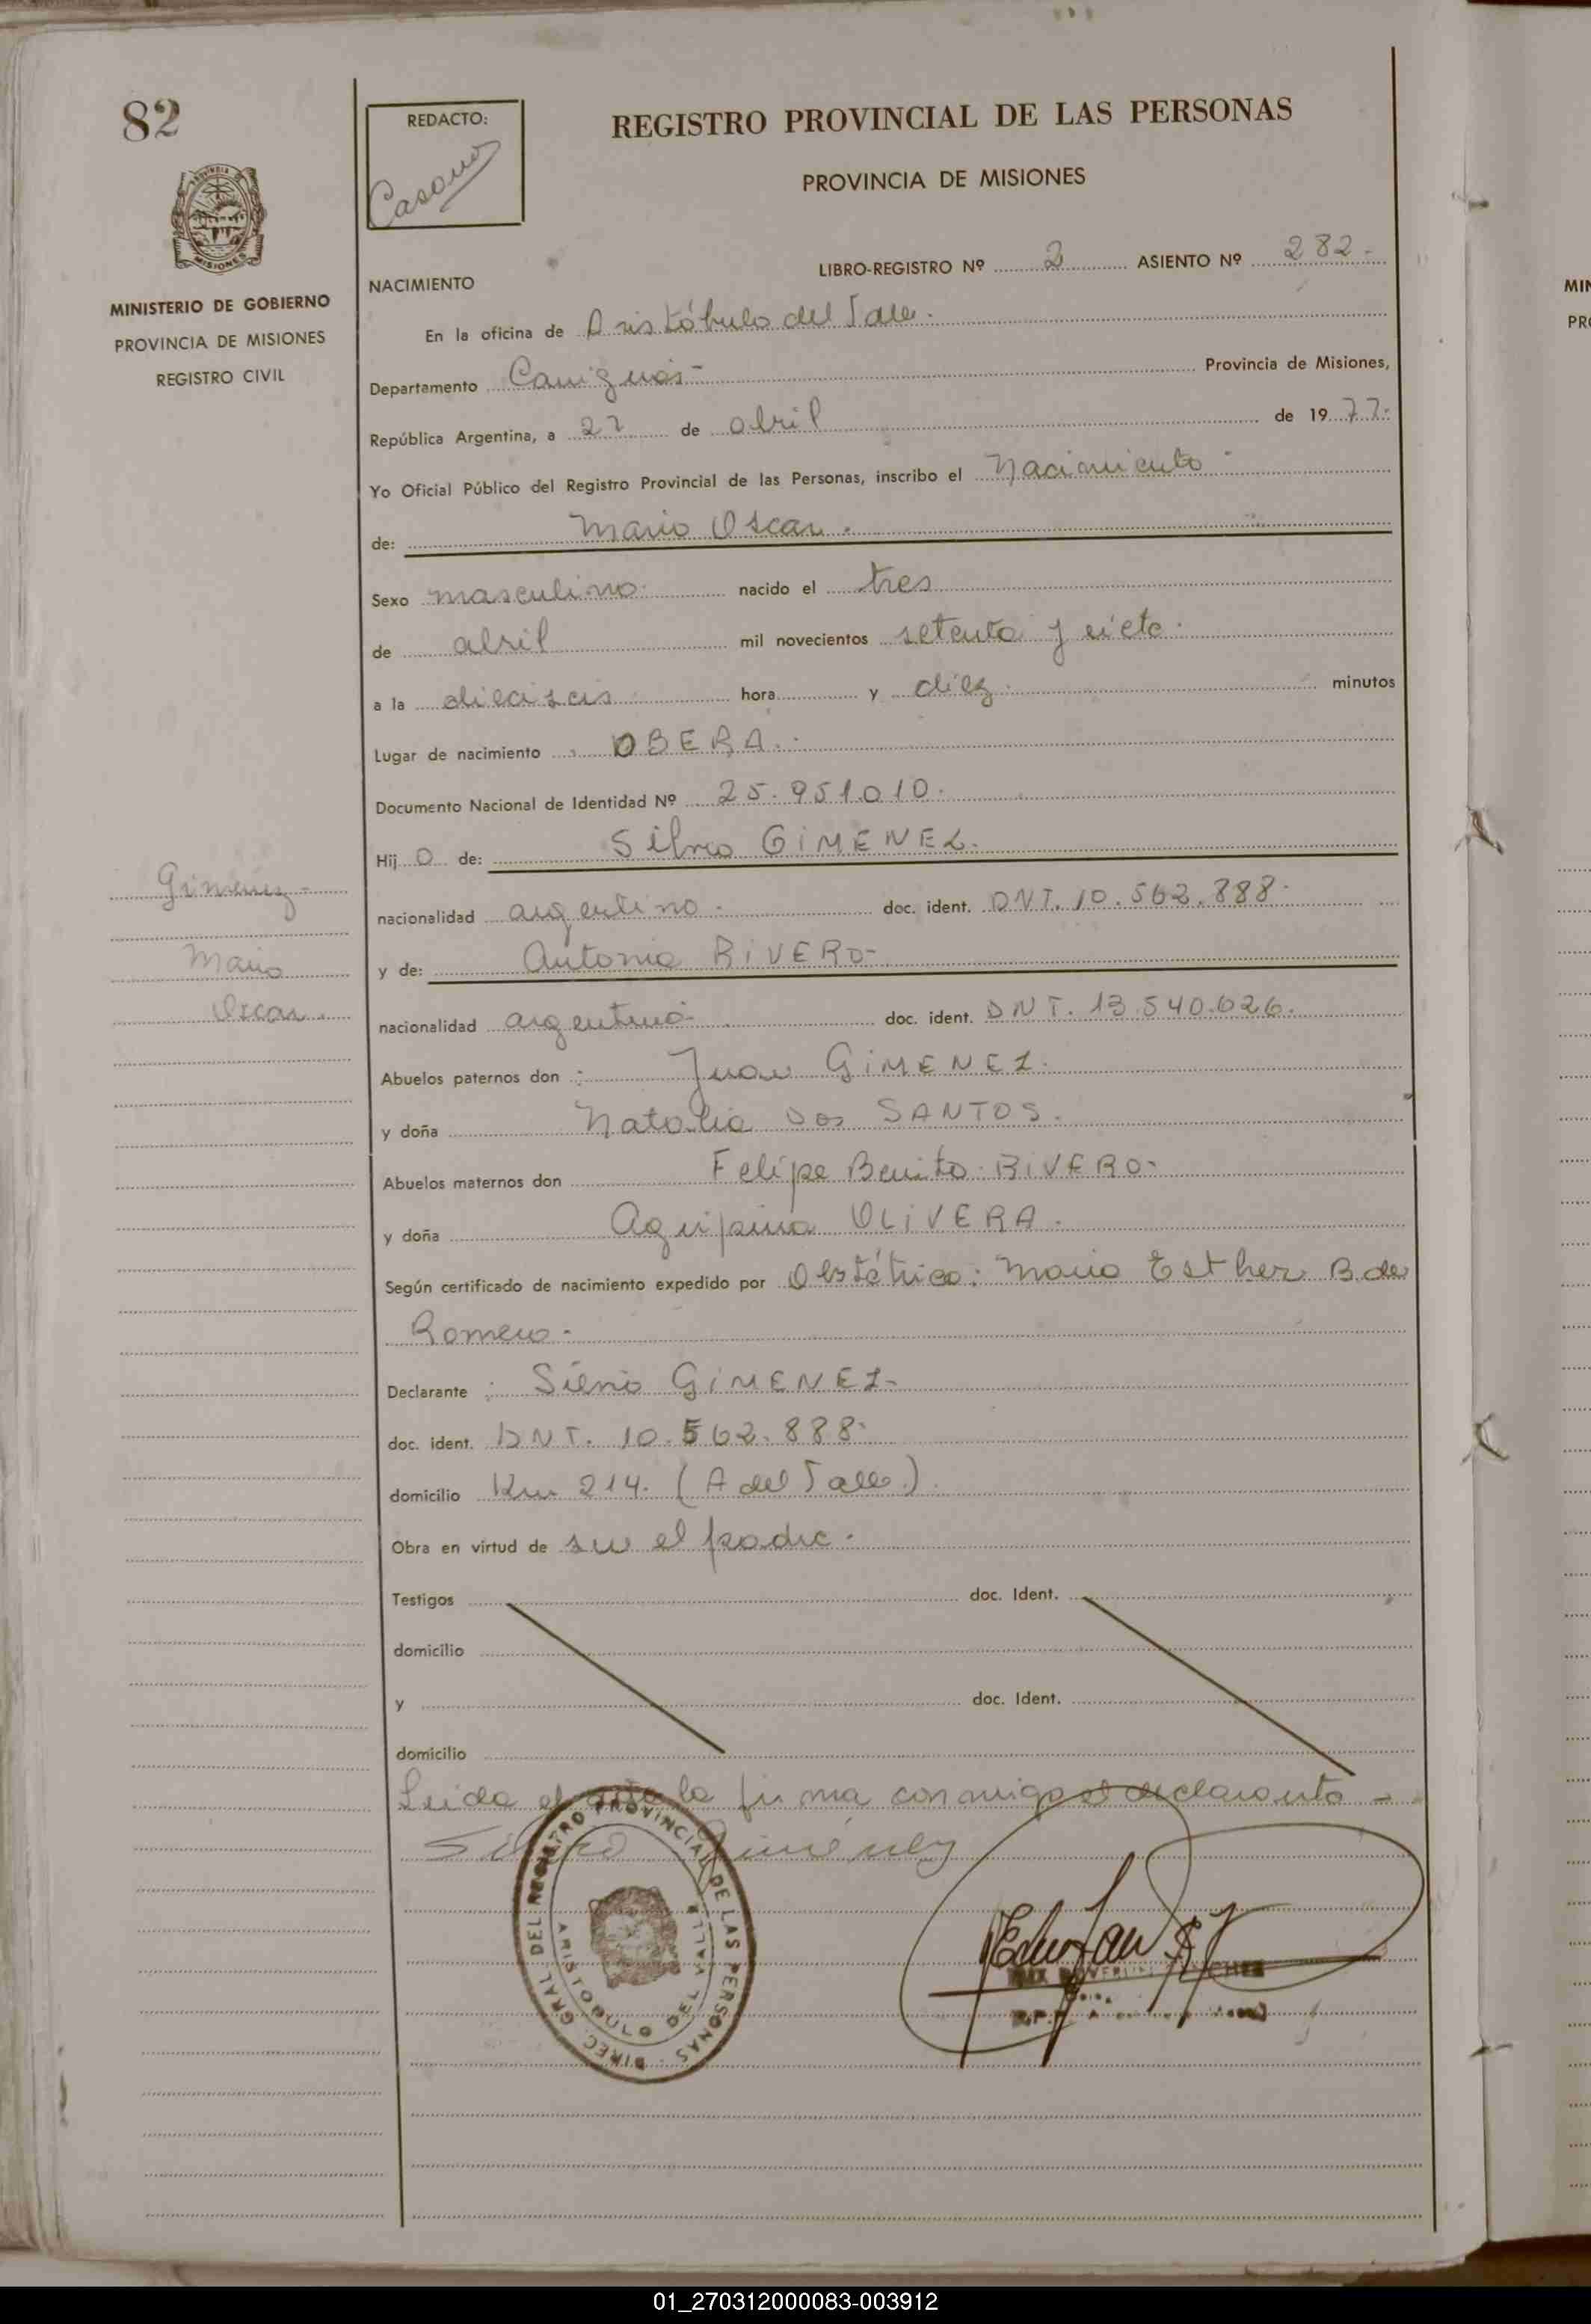 82
REDACTO:
Casano
REGISTRO PROVINCIAL DE LAS PERSONAS
PROVINCIA DE MISIONES
PROVINCIA DE
MISIONES
MINISTERIO DE GOBIERNO
PROVINCIA DE MISIONES
REGISTRO CIVIL
LIBRO-REGISTRO Nº 2 ASIENTO Nº 282-
NACIMIENTO
En la oficina de Aristóbulo del Valle.
Departamento Cainguás- Provincia de Misiones,
República Argentina, a 27 de abril de 1977.
Yo Oficial Público del Registro Provincial de las Personas, inscribo el Nacimiento
de: Mario Oscar.
Sexo masculino. nacido el tres
de abril mil novecientos setenta y siete.
a la dieciseis hora y diez. minutos
Lugar de nacimiento OBERA.
Documento Nacional de Identidad Nº 25.951.010.
Hij o de: Silvio GIMENEZ.
Gimenez-
nacionalidad argentino. doc. ident. DNI. 10.562.888.
Mario
y de: Antonia RIVERO-
Oscar.
nacionalidad argentina. doc. ident. DNI. 13.540.626.
Abuelos paternos don : Juan GIMENEZ.
y doña Natalia Dos SANTOS.
Abuelos maternos don Felipe Benito RIVERO-
y doña Agripina OLIVERA.
Según certificado de nacimiento expedido por Obstétrica: Maria Esther B. de
Romero.
Declarante : Silvio GIMENEZ-
doc. ident. DNI. 10.562.888.
domicilio Km 214. (A del Valle).
Obra en virtud de ser el padre.
Testigos doc. Ident.
domicilio
y doc. Ident.
domicilio
Leida el acta la firma conmigo el declarante -
Silvio Giménez
DIREC. GRAL DEL REGISTRO PROVINCIAL DE LAS PERSONAS
ARISTOBULO DEL VALLE
MIN
PRO
01_270312000083-003912